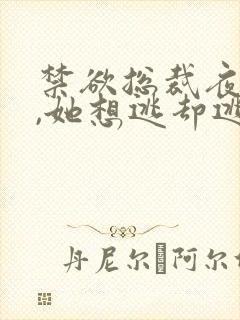 禁欲总裁夜
,她想逃却逃
丹尼尔·阿尔